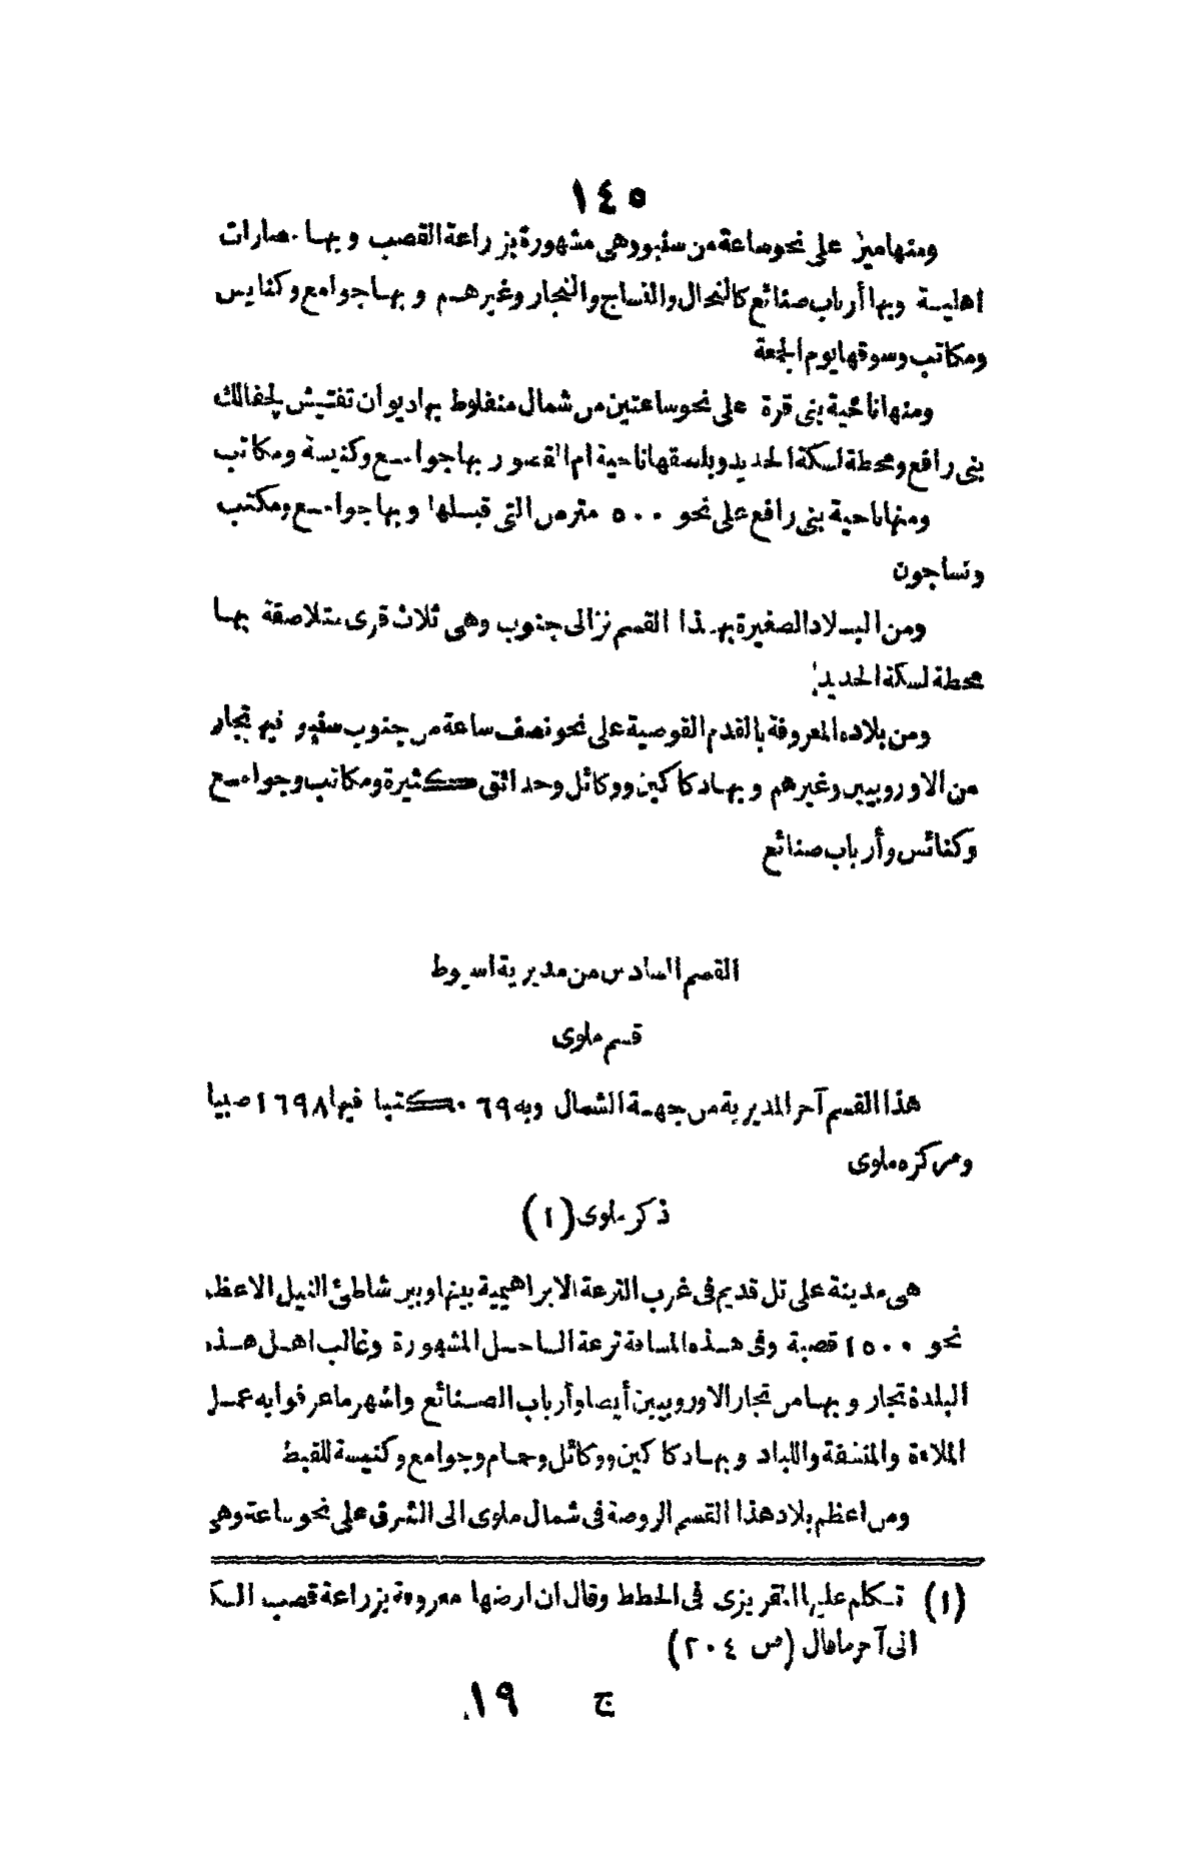 ١٤٥
ومنها مير على نحو ساعة من سنبو وهي مشهورة بزراعة القصب وبها عصارات
اهلية وبها أرباب صنائع كالنحال والنساج والنجار وغيرهم وبها جوامع وكنايس
ومكاتب وسوقها يوم الجمعة
ومنها ناحية بنى قرة على نحو ساعتين من شمال منفلوط بها ديوان تفتيش لجفالك
بنى رافع ومحطة لسكة الحديد وبلسقها ناحية ام القصور بها جوامع وكنيسة ومكاتب
ومنها ناحية بنى رافع على نحو ٥٠٠ متر من التى قبلها وبها جوامع ومكتب
ونساجون
ومن البلاد الصغيرة بهذا القسم نزالى جنوب وهى ثلاث قرى متلاصقة بها
محطة لسكة الحديد
ومن بلاده المعروفة بالقدم القوصية على نحو نصف ساعة من جنوب سنبو فيه تجار
من الاوروبيين وغيرهم وبها دكاكين ووكائل وحدائق كثيرة ومكاتب وجوامع
وكنائس وأرباب صنائع
القسم السادس من مديرية اسيوط
قسم ملوى
هذا القسم آخر المديرية من جهة الشمال وبه ٠٦٩ مكتبا فيها ١٦٩٨ صبيا
ومركزه ملوى
ذكر ملوى (١)
هى مدينة على تل قديم فى غرب الترعة الابراهيمية بينها وبين شاطئ النيل الاعظم
نحو ١٥٠٠ قصبة وفى هذه المسافة ترعة الساحل المشهورة وغالب اهل هذه
البلدة تجار وبها من تجار الاوروبيين أيضا وأرباب الصنائع واشهر ما عرفوا به عمل
الملاءة والمنشفة واللباد وبها دكاكين ووكائل وحمام وجوامع وكنيسة للقبط
ومن اعظم بلاد هذا القسم الروضة فى شمال ملوى الى الشرق على نحو ساعة وهى
(١) تكلم عليها المقريزى فى الخطط وقال ان ارضها معروفة بزراعة قصب السكر
الى آخر ما قال (ص ٢٠٤)
ج ١٩